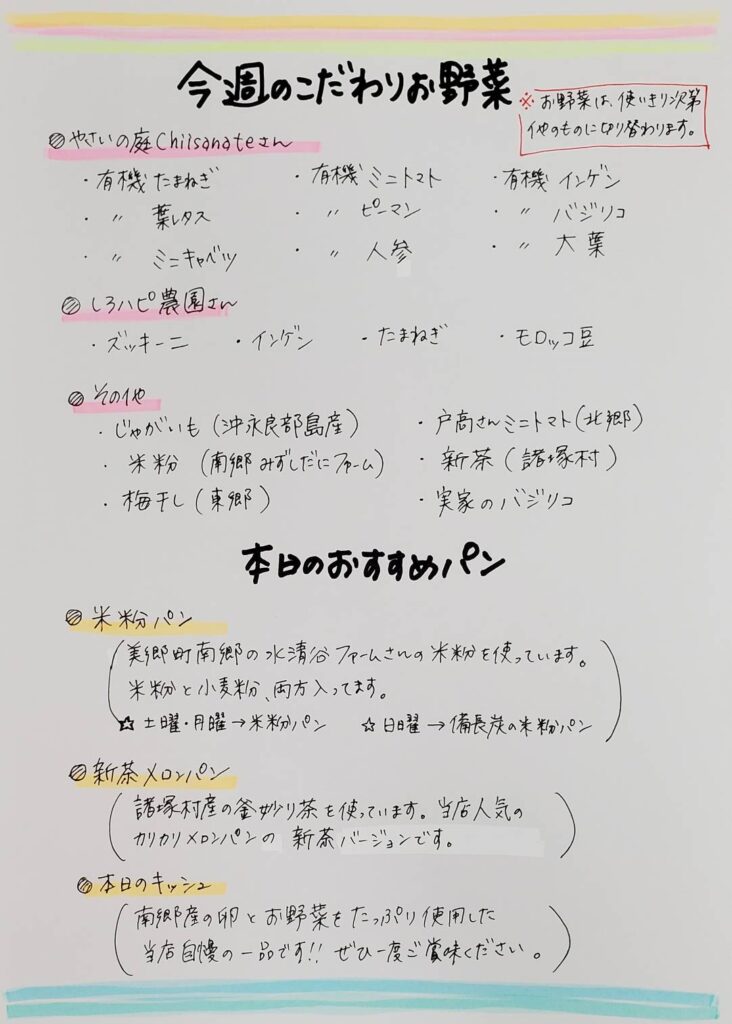 今週のこだわりお野菜
※ お野菜は、使いきり次第
他のものに切り替わります。
やさいの庭Chiisanateさん
・有機 たまねぎ ・有機 ミニトマト ・有機 インゲン
・〃 葉レタス ・〃 ピーマン ・〃 バジリコ
・〃 ミニキャベツ ・〃 人参 ・〃 大葉
しろハピ農園さん
・ズッキーニ ・インゲン ・たまねぎ ・モロッコ豆
その他
・じゃがいも (沖永良部島産) ・戸高さんミニトマト(北郷)
・米粉 (南郷みずしだにファーム) ・新茶 (諸塚村)
・梅干し (東郷) ・実家のバジリコ
本日のおすすめパン
米粉パン
(美郷町南郷の水清谷ファームさんの米粉を使っています。
米粉と小麦粉、両方入ってます。
☆ 土曜・月曜→米粉パン ☆ 日曜→備長炭の米粉パン)
新茶メロンパン
(諸塚村産の釜炒り茶を使っています。当店人気の
カリカリメロンパンの 新茶バージョンです。)
本日のキッシュ
(南郷産の卵とお野菜をたっぷり使用した
当店自慢の一品です!! ぜひ一度ご賞味ください。)